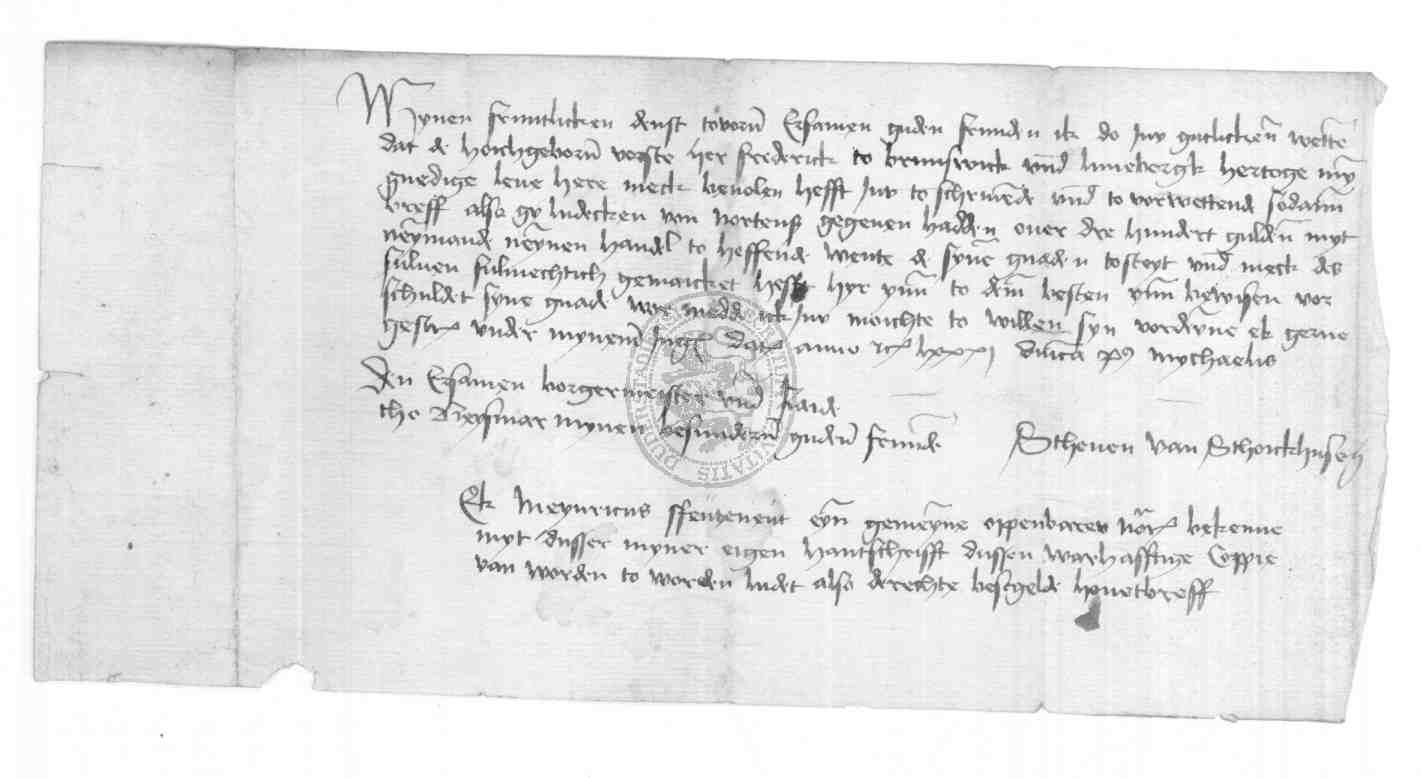 Mynen fruntlicken denst tovorn Ersamen guden frunde n ik do juw gutlicken wetten
dat de hoichgeborn vorste her frederick to brunswick und luneborgk hertoge my
gnedige leve here meck bevolen hefft juw to schrivende und to vorwettende sodann
breff also gy ludecken van Nortens gegeven hadde n over dre hundert gulden myt
neymande neynen handel to hessende wente de syne gnade n tosteyt und meck des
sulven fulmechtich gemaicket hefft hyr ynn to dem besten ynn bewisen vor
schuldet syne gnade wor medde ick juw moichte to willen syn vordeyne ek gerne
gescr under mynem Ingeß dat anno rc lxxxj dnica pꝰ mychaelis
Den Ersamen borgermeister und Raide
tho mynen besundern guden frunde
Stheven van Sthoickhusen
Ek Meynricus eyn gemeyne oppenbarer Nor bekenne
myt dusser myner eigen hantschrifft dussen warhafftige Coppie
van worden to worden ludet also de rechte besegelde hovetbreff
CIVITATIS